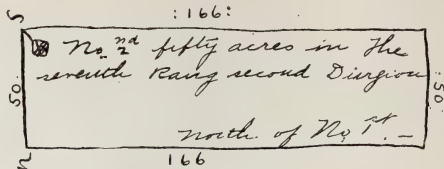 :166:
S
No. 2nd fifty acres in The
seventh Rang second Divigion
50
50
north of No. 1st. –
N
166